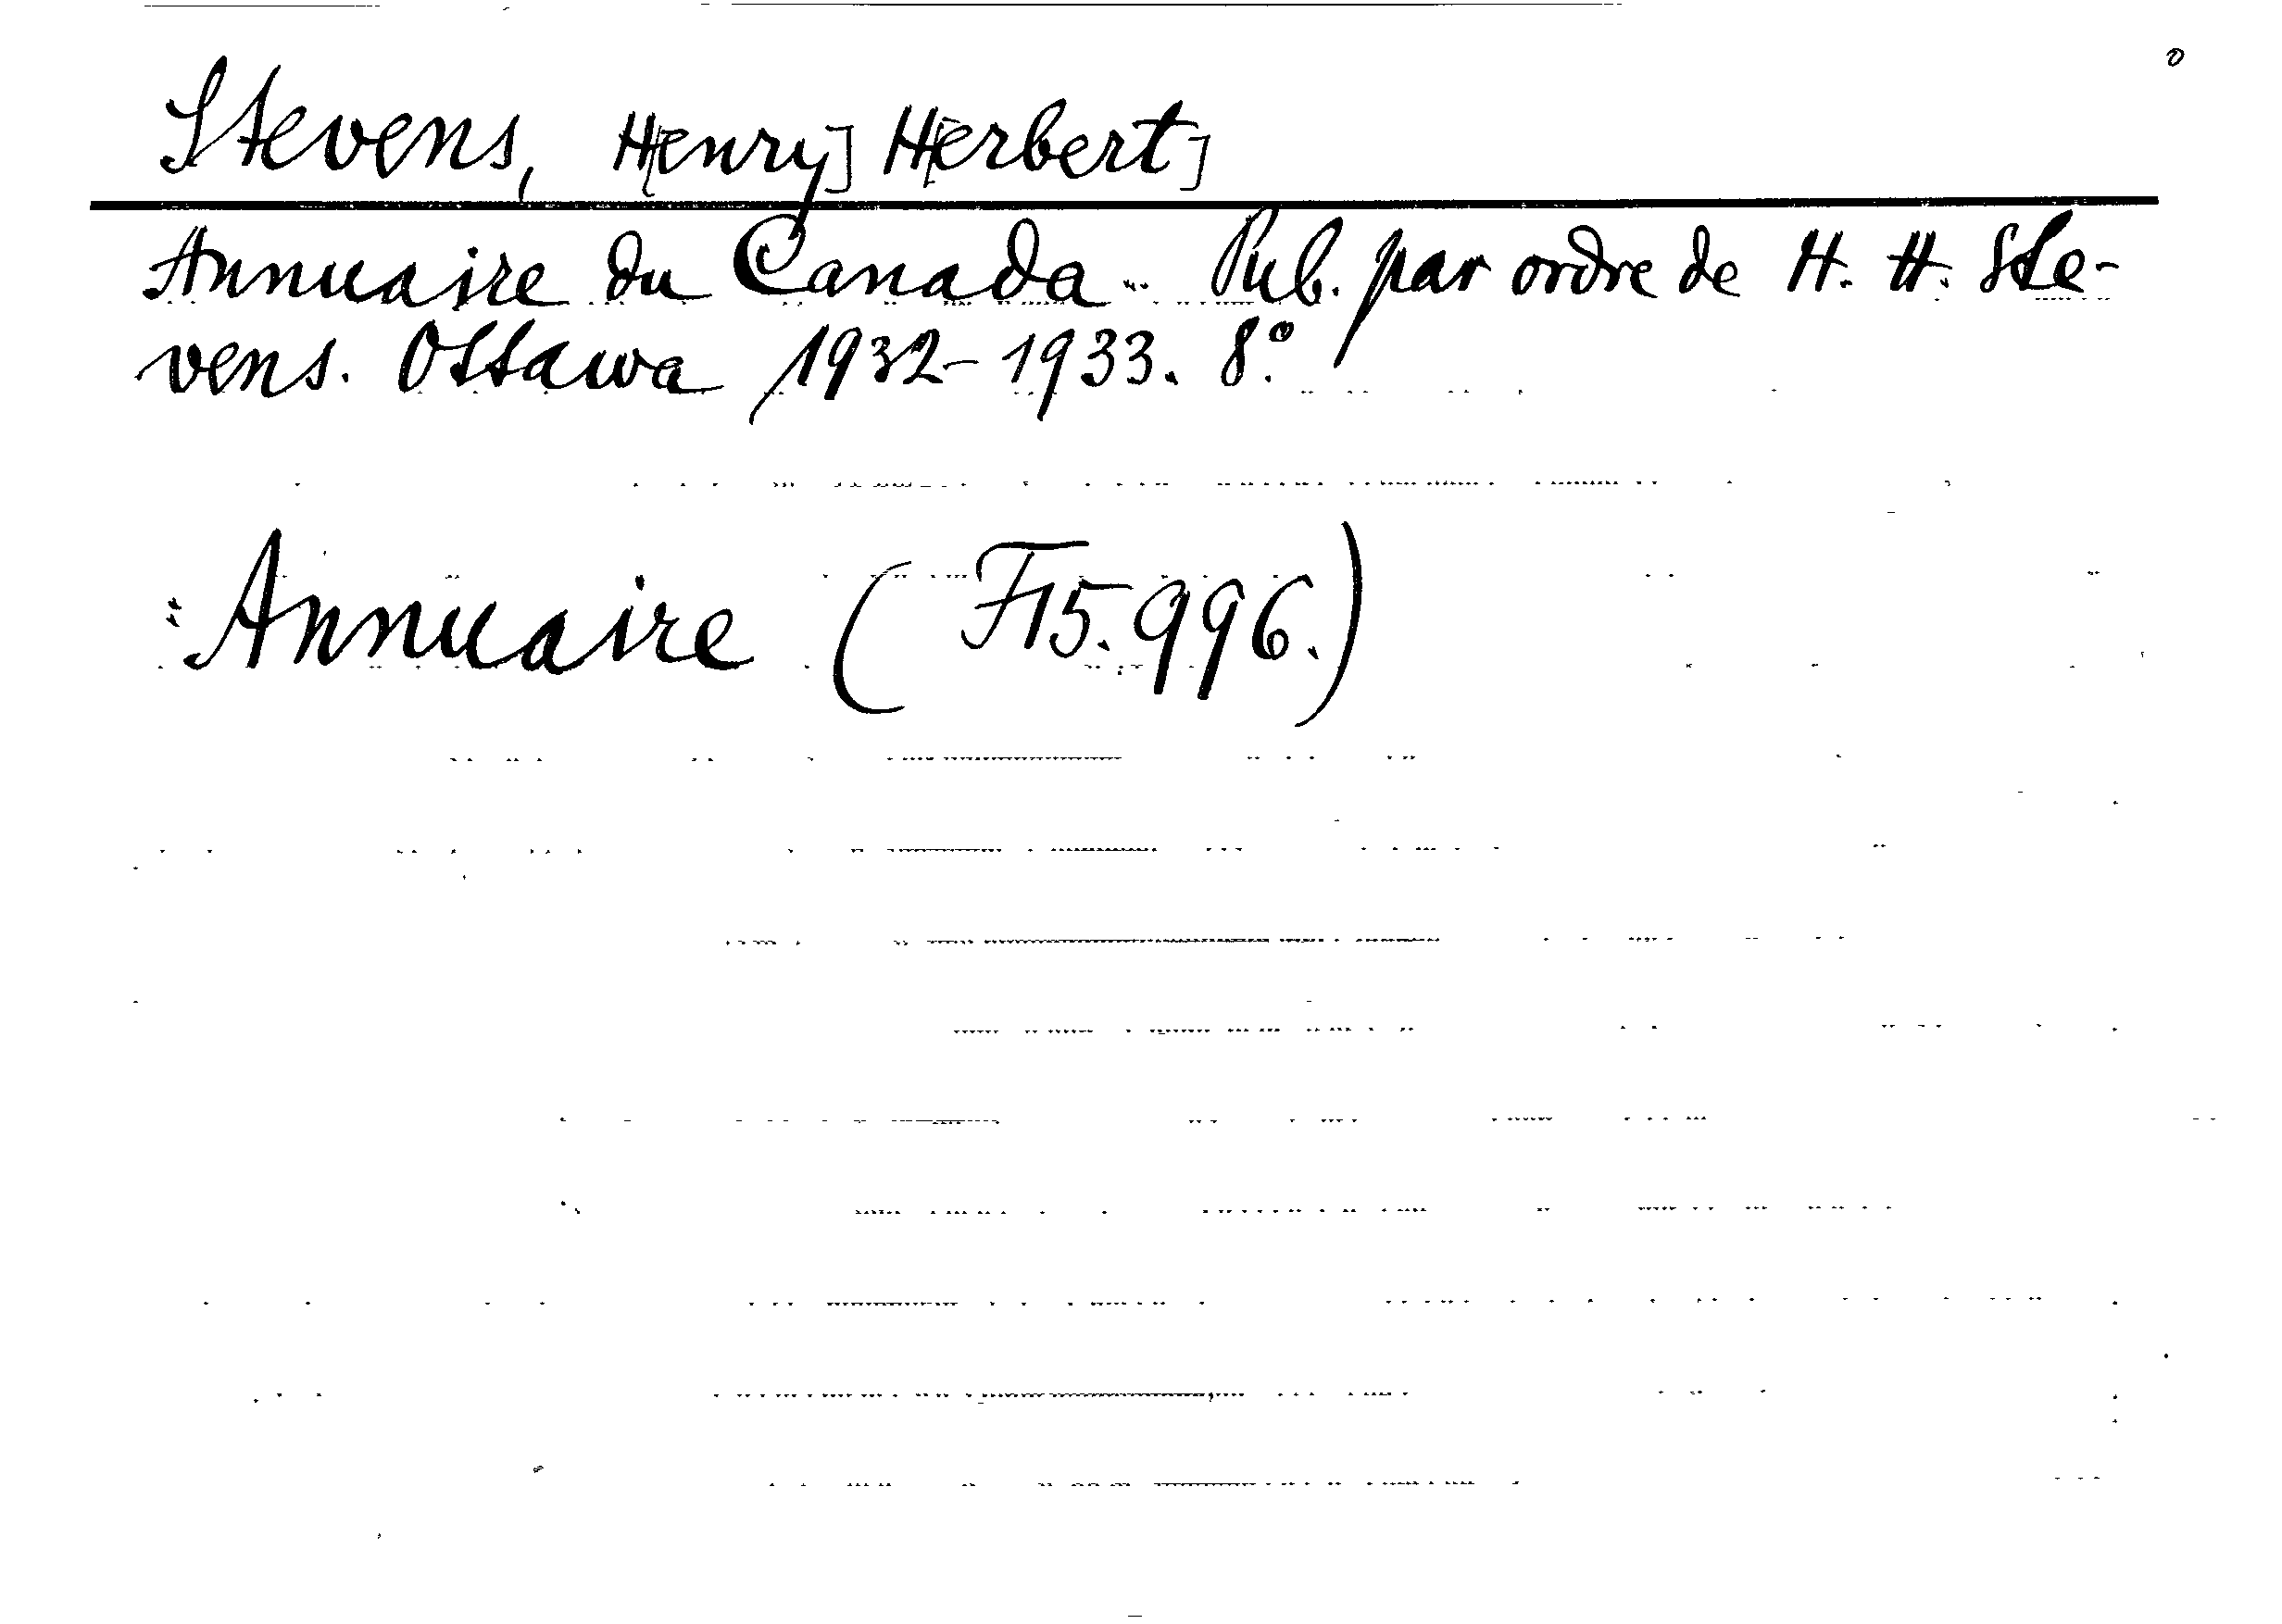 Stevens, H[enry] H[erbert]
Annuaire du Canada. Pub. par ordre de H. H. Ste-
vens. Ottawa 1932-1933. 8°.
: Annuaire (F15.996.)